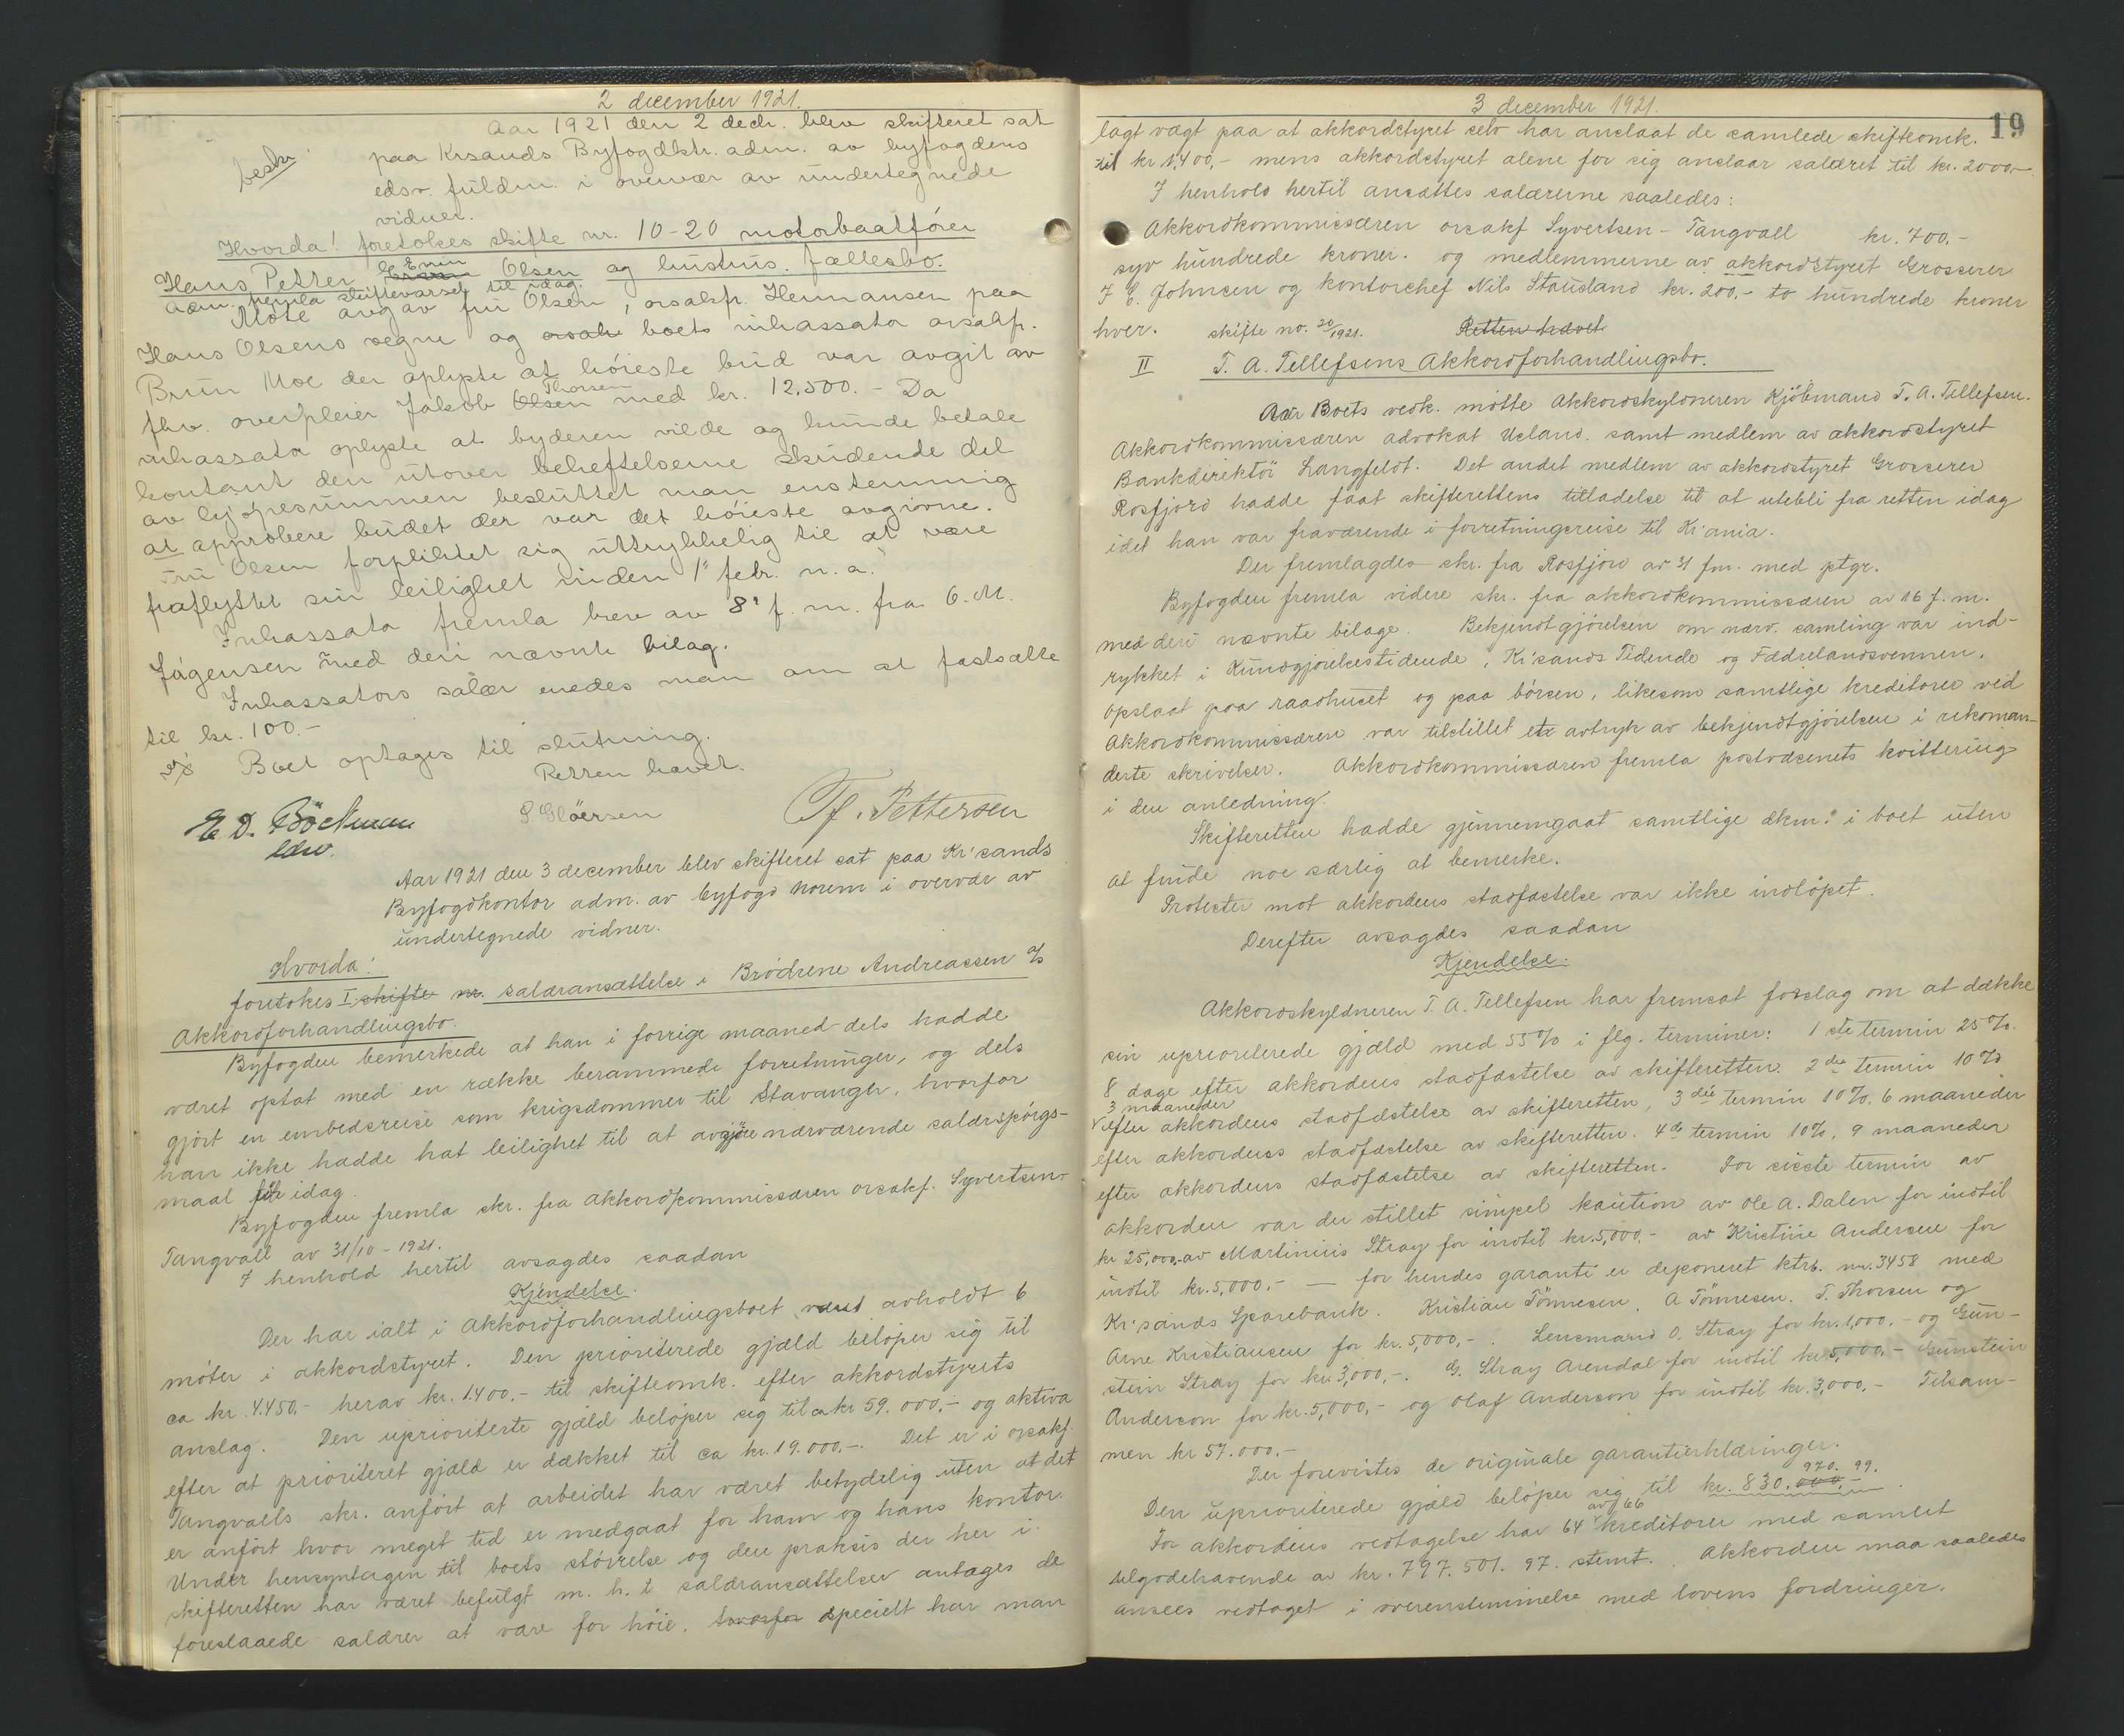 2 december 1921.
Aar 1921 den 2 decbr. blev skifteret sat
beskr.
paa Krsands Byfogdktr. adm. av byfogdens
edsv. fuldm. i overvær av undertegnede
vidner.
Hvorda! foretokes skifte nr. 10-20 motorbaatfører
Hans Petter Enin Olsen og hustrus fællesbo.
Adm. fremla skiftevarsel til idag.
Møte avgav fru Olsen, orsakfr. Hermansen paa
Hans Olsens vegne og orsak boets inkassator orsakfr.
Bruun Moe der oplyste at høieste bud var avgit av
Thorsen
fhv. overpleier Jakob Olsen med kr. 12.500.- Da
inkassator oplyste at byderen vilde og kunde betale
kontant den utover beheftelserne skydende del
av kjøpesummen besluttet man enstemmig
at approbere budet der var det høieste avgivne.
Fru Olsen forpliktet sig uttrykkelig til at være
fraflyttet sin leilighet inden 1' febr. n. a.
Inkassator fremla brev av 8' f. m. fra G. M.
Jørgensen med deri nævnte bilag.
Inkassators salær enedes man om at fastsætte
til kr. 100.-
Boet optages til slutning.
Retten hævet.
E. D. Böckman
edsv.
S. Gløersen
Tf. Pettersen
Aar 1921 den 3 december blev skifteret sat paa Kr'sands
Byfogdkontor adm. av byfogd Norem i overvær av
undertegnede vidner.
Hvorda!
foretokes I skifte nr. salæransættelse i Brødrene Andreassen A/S
Akkordforhandlingsbo.
Byfogden bemerkede at han i forrige maaned dels hadde
været optat med en række berammede forretninger, og dels
gjort en embedsreise som krigsdommer til Stavanger, hvorfor
han ikke hadde hat leilighet til at avgjøre nærværende salærspørgs-
maal før idag.
Byfogden fremla skr. fra akkordkommissæren orsakf. Syvertsen-
Tangvall av 31/10-1921.
I henhold hertil avsagdes saadan
Kjendelse.
Der har ialt i akkordforhandlingsboet været avholdt 6
møter i akkordstyret. Den prioriterede gjæld beløper sig til
ca kr. 4.450,- herav kr. 1.400,- til skifteomk. efter akkordstyrets
anslag. Den uprioriterte gjæld beløper sig til ca kr 59.000,- og aktiva
efter at prioriteret gjæld er dækket til ca kr. 19.000.-. Det er i orsakf.
Tangvalls skr. anført at arbeidet har været betydelig uten at det
er anført hvor meget tid er medgaat for ham og hans kontor.
Under hensyntagen til boets størrelse og den praksis der her i
skifteretten har været befulgt m. h. t. salæransættelser antages de
foreslaaede salærer at være for høie, hvorfor specielt har man
3 december 1921.
19
lagt vægt paa at akkordstyret selv har anslaat de samlede skifteomk.
til kr 1,400,- mens akkordstyret alene for sig anslaar salæret til kr. 2000,-
I henhold hertil ansættes salærerne saaledes:
Akkordkommissæren orsakf Syvertsen-Tangvall kr. 700,-
syv hundrede kroner. og medlemmerne av akkordstyret Grosserer
J. C. Johnsen og kontorchef Nils Stausland kr. 200,- to hundrede kroner
hver. skifte no. 20/1921. Retten hævet
II T. A. Tellefsens Akkordforhandlingsbo.
Aar Boets vedk. møtte akkordskyldneren Kjøbmand T. A. Tellefsen.
Akkordkommissæren advokat Ueland. samt medlem av akkordstyret
Bankdirektør Langfeldt. Det andet medlem av akkordstyret Grosserer
Rosfjord hadde faat skifterettens tilladelse til at utebli fra retten idag
idet han var fraværende i forretningsreise til Kr'ania.
Der fremlagdes skr. fra Rosfjord av 31 fm. med ptgr.
Byfogden fremla videre skr. fra akkordkommissæren av 16 f. m.
med deri nævnte bilage. Bekjendtgjørelsen om nærv. samling var ind-
rykket i Kundgjørelsestidende, Kr'sands Tidende og Fædrelandsvennen,
opslaat paa raadhuset og paa børsen, likesom samtlige kreditorer ved
akkordkommissæren var tilstillet et avtryk av bekjendtgjørelsen i rekoman-
derte skrivelser. Akkordkommissæren fremla postvæsenets kvittering
i den anledning.
Skifteretten hadde gjennemgaat samtlige dkm. i boet uten
at finde noe særlig at bemerke.
Protester mot akkordens stadfæstelse var ikke indløpet.
Derefter avsagdes saadan
Kjendelse.
Akkordskyldneren T. A. Tellefsen har fremsat forslag om at dække
sin uprioriterede gjæld med 55% i flg. terminer: 1ste termin 25%.
8 dage efter akkordens stadfæstelse av skifteretten. 2den termin 10%
3 maaneder
efter akkordens stadfæstelse av skifteretten, 3die termin 10%. 6 maaneder
efter akkordens stadfæstelse av skifteretten. 4de termin 10%, 9 maaneder
efter akkordens stadfæstelse av skifteretten. For sidste termin av
akkorden var der stillet simpel kaution av Ole A. Dalen for indtil
kr 25,000,- av Martinius Stray for indtil kr. 5,000,- av Kristine Andersen for
indtil kr. 5,000,- — for hendes garanti er deponeret ktrb. nr. 3458 med
Kr'sands Sparebank. Kristian Tønnesen, A Tønnesen. T. Thorsen og
Arne Kristiansen for kr. 5,000,-. Lensmand O. Stray for kr. 1,000.- og Gun-
stein Stray for kr. 3,000,-. G. Stray Arendal for indtil kr. 5,000,- Gunstein
Anderson for kr. 5,000,- og Olaf Anderson for indtil kr. 3,000,- Tilsam-
men kr 57.000,-
Der forevistes de originale garantierklæringer.
970. 99.
Den uprioriterede gjæld beløper sig til kr. 830.000.-
av 66
For akkordens vedtagelse har 64 kreditorer med samlet
tilgodehavende av kr. 797.501.97. stemt. Akkorden maa saaledes
ansees vedtaget i overenstemmelse med lovens fordringer.